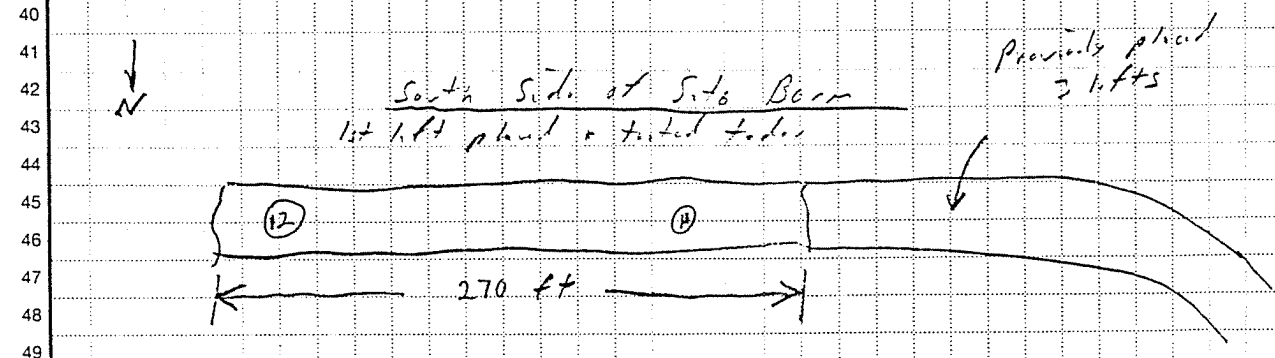 40
41
42
43
44
45
46
47
48
49
N
South Side of Site Berm
1st lift placed & tested today
Previously placed
lifts
12
11
270 ft